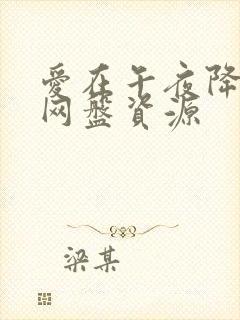 愛在午夜降
网盤資源
梁某